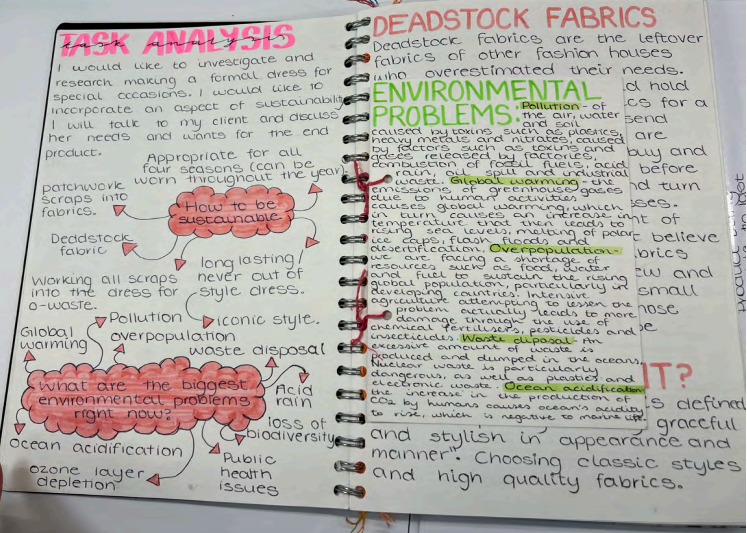 TASK ANALYSIS
task analysis
I would like to investigate and
research making a formal dress for
special occasions. I would like to
incorporate an aspect of sustainability
I will talk to my client and discuss
her needs and wants for the end
product.
Appropriate for all
four seasons (can be
worn throughout the year)
patchwork
scraps into
fabrics.
How to be
sustainable
Deadstock
fabric
long lasting/
never out of
style dress.
Working all scraps
into the dress for
0-waste.
iconic style.
Pollution
Global
warming
overpopulation
waste disposal
What are the biggest
environmental problems
right now?
Acid
rain
loss of
biodiversity
Ocean acidification
Public
health
issues
ozone layer
depletion
DEADSTOCK FABRICS
Deadstock fabrics are the leftover
fabrics of other fashion houses
who overestimated their needs.
ENVIRONMENTAL
PROBLEMS:
Pollution - of
the air, water
and soil
caused by toxins such as plastics,
heavy metals and nitrates, caused
by factors such as toxins and
gases released by factories,
combustion of fossil fuels, acid
rain, oil spill and industrial
waste. Global warming - the
emissions of greenhouse gases
due to human activities
causes global warming, which
in turn causes an increase in
temperature that then leads to
rising sea levels, melting of polar
ice caps, flash floods and
desertification. Overpopulation-
we are facing a shortage of
resources such as food, water
and fuel to sustain the rising
global population, particularly in
developing countries. Intensive
agriculture attempting to lessen the
problem actually leads to more
damage through the use of
chemical fertilisers, pesticides and
insecticides. Waste disposal- An
excessive amount of waste is
produced and dumped in the oceans,
Nuclear waste is particularly
dangerous, as well as plastics and
electronic waste. Ocean acidification
the increase in the production of
CO2 by humans causes ocean's acidity
to rise, which is negative to marine life.
d hold
cs for a
send
are
buy and
before
nd turn
ses.
nt of
believe
brics
ew and
small
hose
be
IT?
is defined
graceful
and stylish in appearance and
manner". Choosing classic styles
and high quality fabrics.